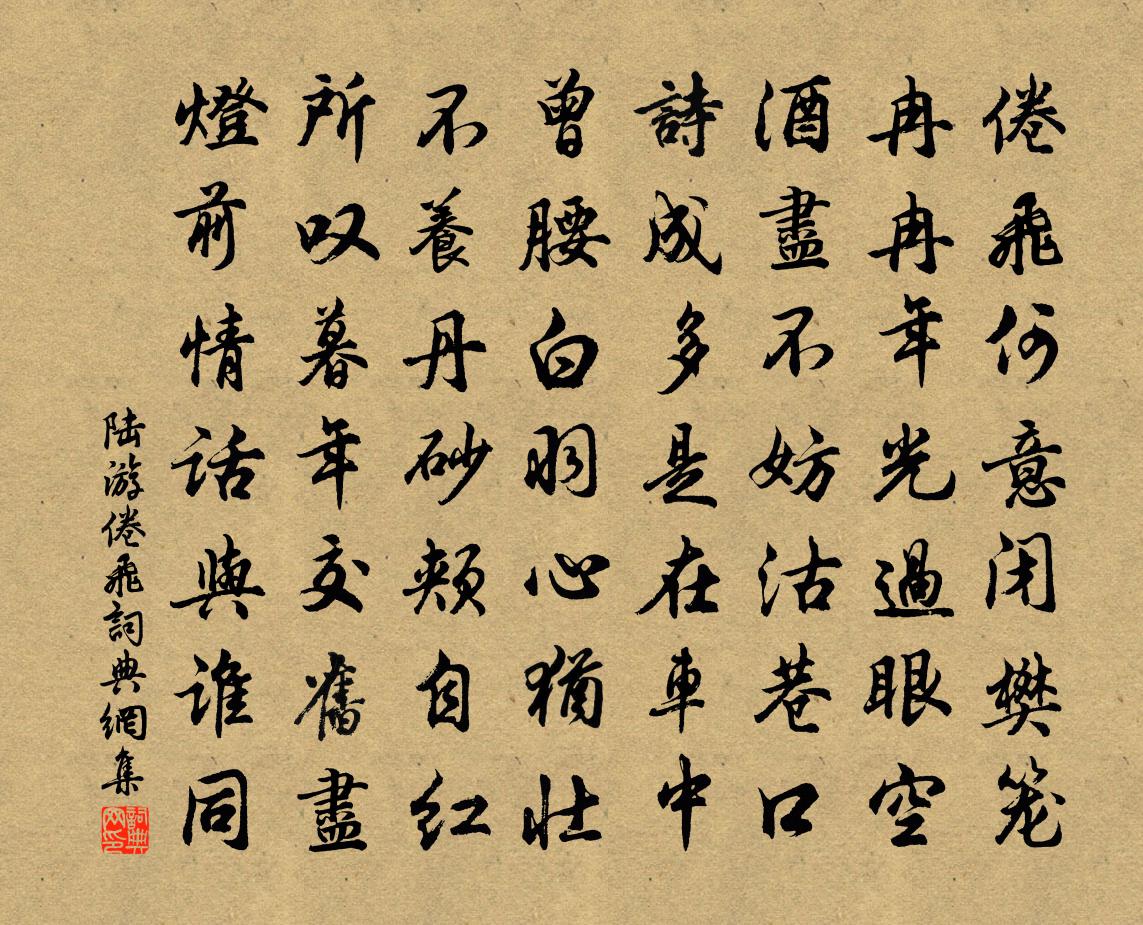 倦飛何意閉樊笼
冉冉年光過眼空
酒盡不妨沽巷口
詩成多是在車中
曾腰白羽心猶壯
不養丹砂頰自红
所叹暮年交舊盡
燈前情話與誰同
陆游倦飛詞典網集
詞典网印